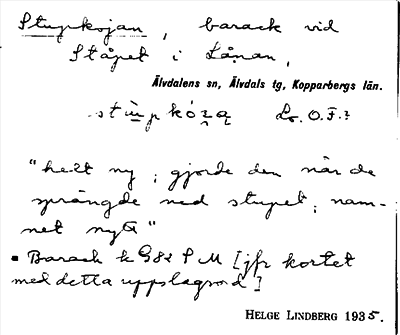 Stupkojan, barack vid
Ståpet i Lånan,
Älvdalens sn, Älvdals tg, Kopparbergs län.
"helt ny; gjorde den när de
sprängde ned stupet; nam-
net nytt"
Barack k G82 S M [jfr kortet
med detta uppslagsord]
HELGE LINDBERG 1935.